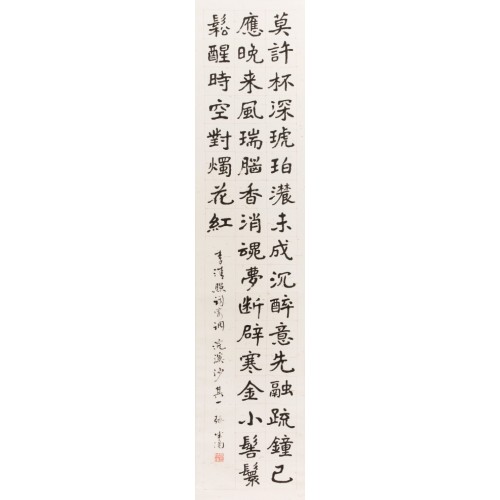 莫許杯深琥珀濃未成沉醉意先融疏鐘已
應晚来風瑞腦香消魂夢斷辟寒金小髻鬟
鬆醒時空對燭花紅
李清照詞寄調浣溪沙其一